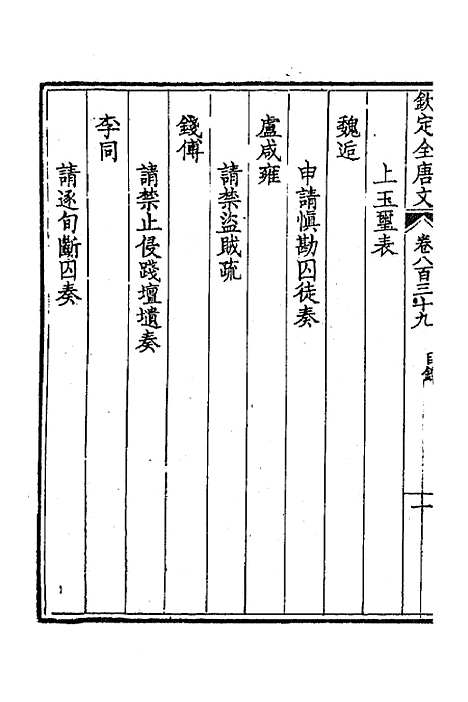 欽定全唐文 卷八百三十九 目錄 二
上玉璽表
魏逅
申請慎勘囚徒奏
盧咸雍
請禁盜賊疏
錢傅
請禁止侵踐壇壝奏
李同
請逐旬斷囚奏